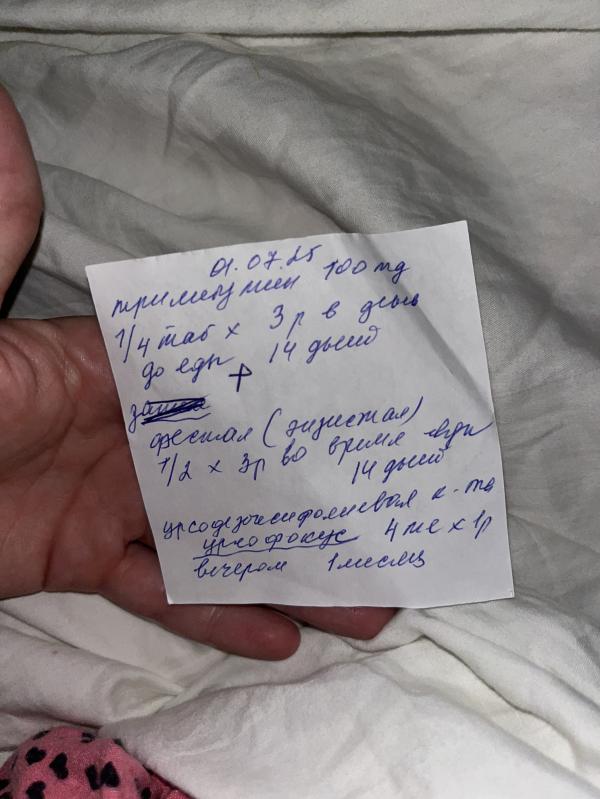 01.07.25
тримебутин 100 mg
1/4 таб х 3 р в день
до еды 14 дней
+
фестал (энзистал)
1/2 х 3р во время еды
14 дней
урсодезоксифолиевая к-та
урсофокус 4 мл х 1р
вечером 1 месяц